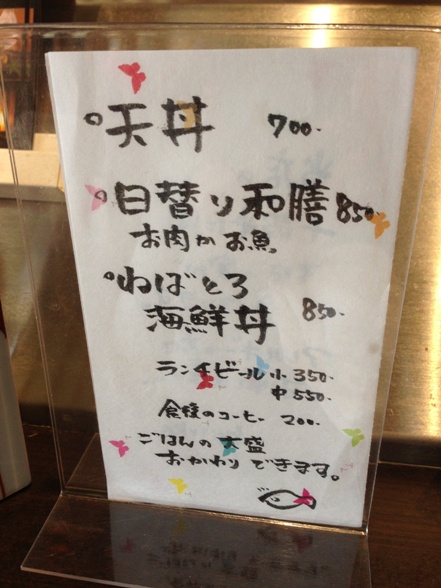 天丼 700.
日替り和膳 850.
お肉かお魚
ねばとろ
海鮮丼 850.
ランチビール小 350.
中 550.
食後のコーヒー 200.
ごはんの大盛
おかわりできます。